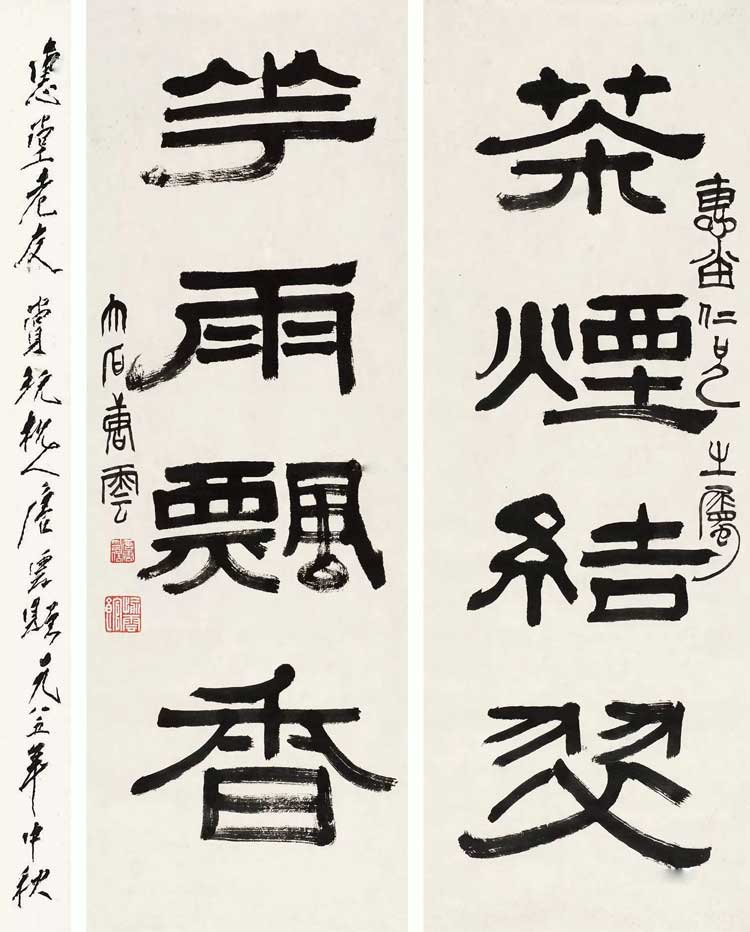 茶煙結翠
惠仁兄之屬
華雨飄香
大石唐雲
堂老友賞玩杭人唐雲題一九八五年中秋